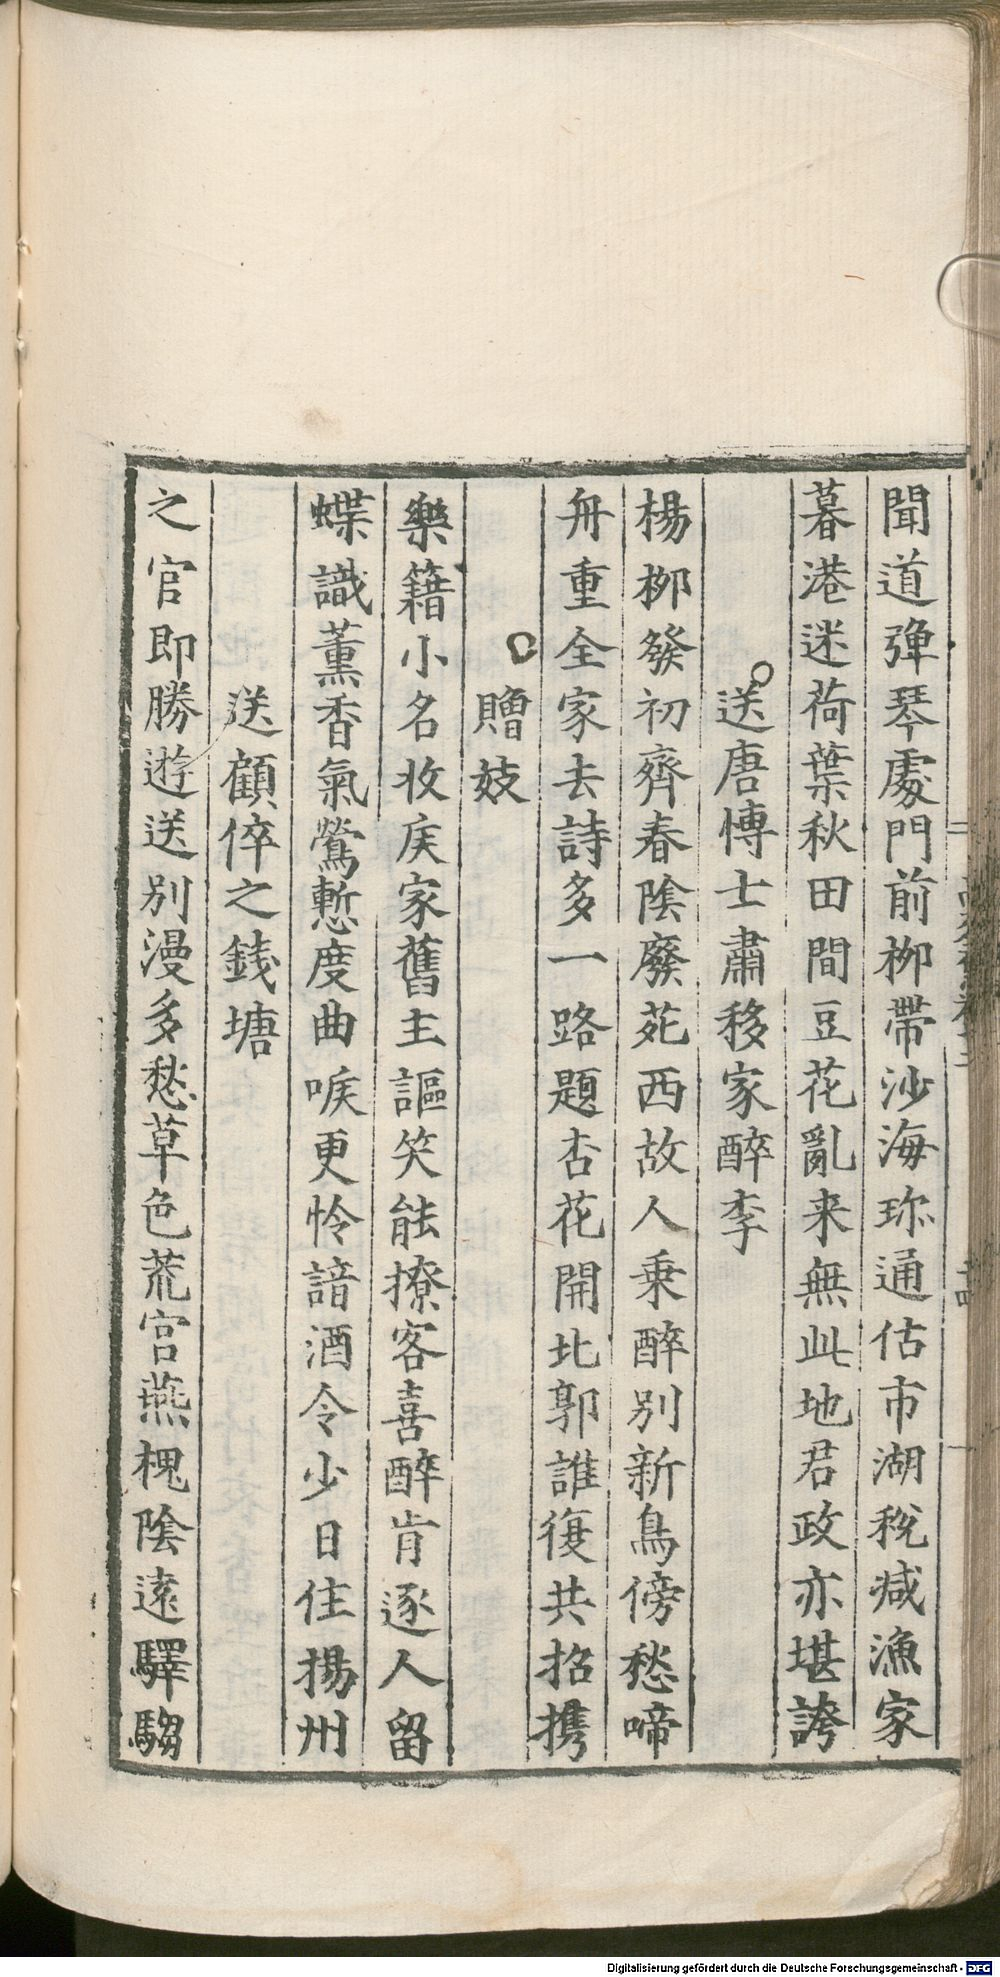 聞道彈琴處門前柳帶沙海珎通估市湖稅减漁家
暮港迷荷葉秋田間豆花亂来無此地君政亦堪誇
送唐愽士肅移家醉李
楊柳發初齊春陰廢苑西故人乗醉別新鳥傍愁啼
舟重全家去詩多一路題杏花開北郭誰復共招携
贈妓
樂籍小名收矦家舊主謳笑能撩客喜醉肯逐人留
蝶識薰香氣鶯慙度曲喉更怜諳酒令少日住揚州
送顧倅之錢塘
之官即勝遊送別漫多愁草色荒宫燕槐陰遠驛騶
Digitalisierung gefördert durch die Deutsche Forschungsgemeinschaft - DFG